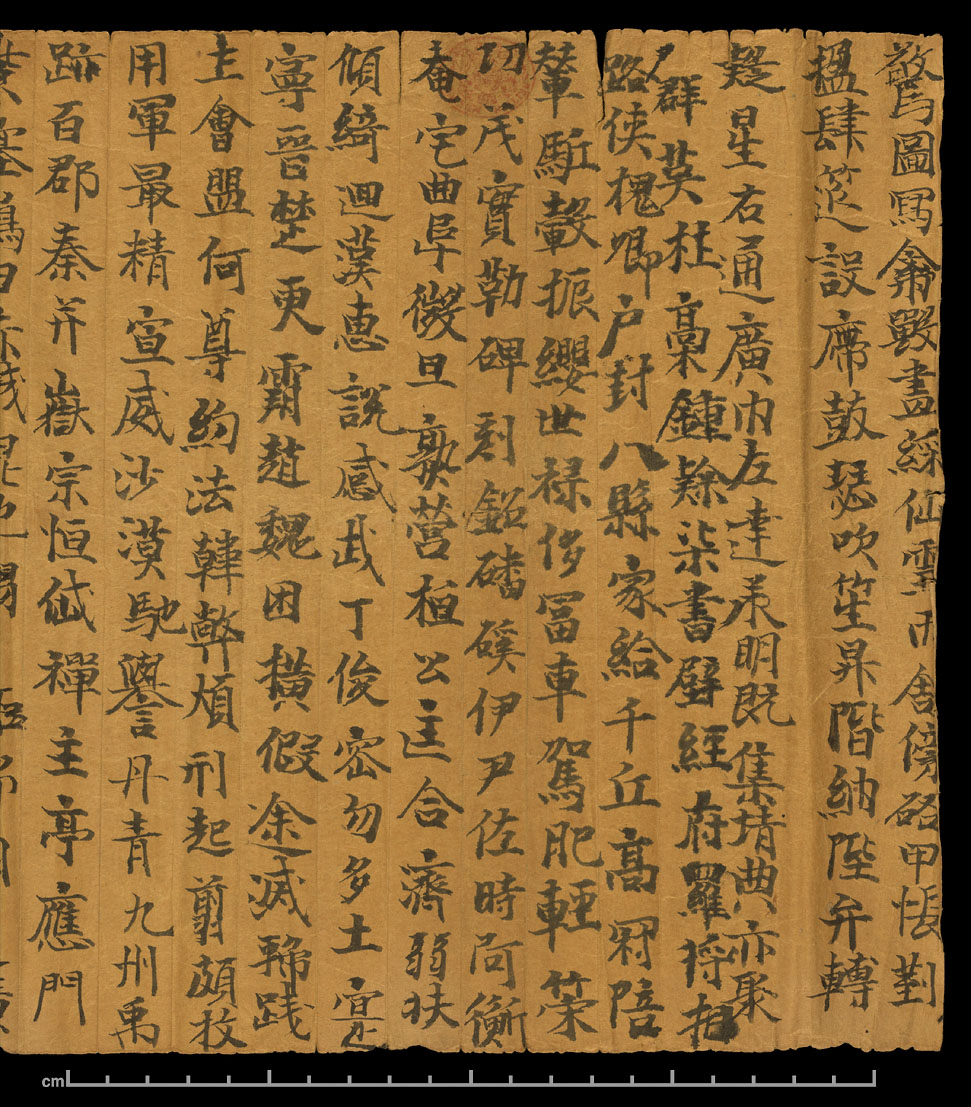 驚圖寫禽獸畫綵仙霊丙舍傍啓甲帳對
楹肆筵設席鼓瑟吹笙昇階納陛弁轉
疑星右通廣内左達承明既集墳典亦聚
群英杜稾鍾隸柒書壁經府羅將相
路俠槐卿戶封八縣家給千丘高冠陪
輦駈轂振纓世祿侈冨車駕肥輕策
功茂實勒碑刻銘磻磎伊尹佐時阿衡
奄宅曲阜微旦孰營桓公匡合濟弱扶
傾綺迴漢恵說感武丁俊密勿多士寔
寧晉楚更霸趙魏困橫假途滅虢踐
土會盟何尊約法韓弊煩刑起翦頗牧
用軍最精宣威沙漠馳譽丹青九州禹
跡百郡秦并嶽宗恒岱禪主亭應門